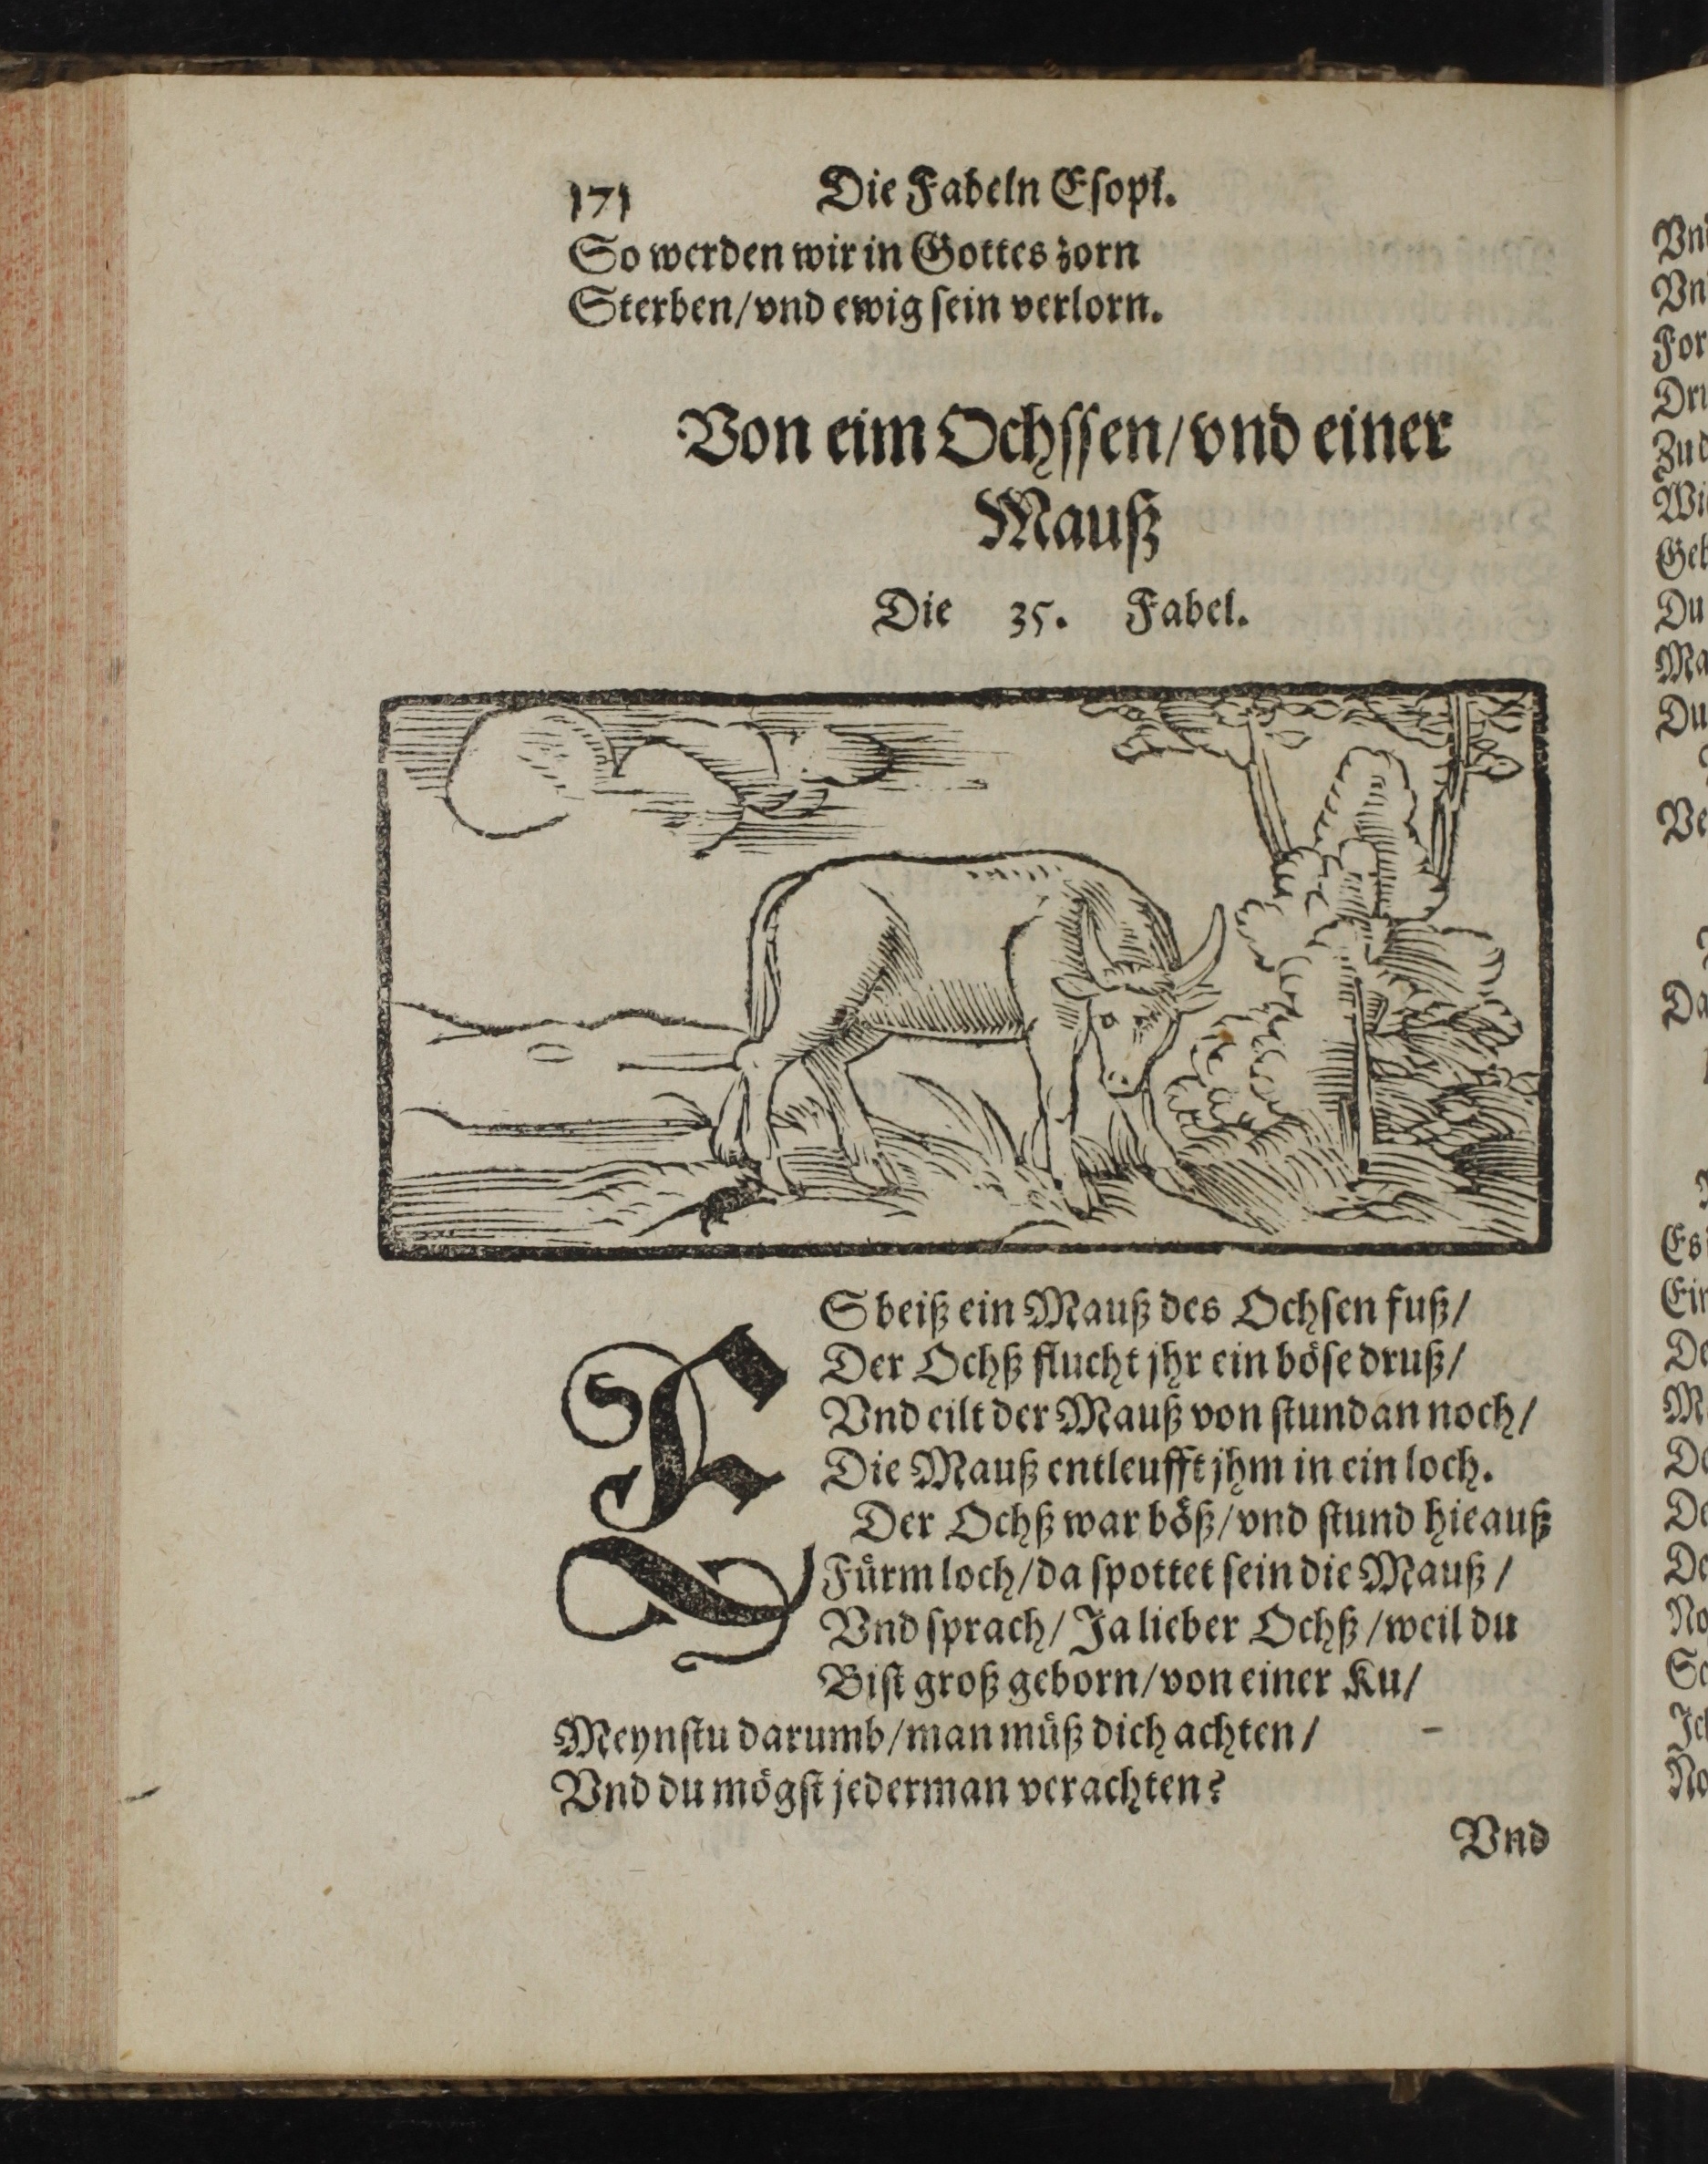 171 Die Fabeln Esopi.
So werden wir in Gottes zorn
Sterben/vnd ewig sein verlorn.
Von eim Ochssen/vnd einer
Mauß
Die 35. Fabel.
ES beiß ein Mauß des Ochsen fuß/
Der Ochß flucht jhr ein böse druß/
Vnd eilt der Mauß von stundan noch/
Die Mauß entleufft jhm in ein loch.
Der Ochß war böß/vnd stund hieauß
Fürm loch/da spottet sein die Mauß/
Vnd sprach/Ja lieber Ochß/weil du
Bist groß geborn/von einer Ku/
Meynstu darumb/man müß dich achten/
Vnd du mögst jederman verachten?
Vnd